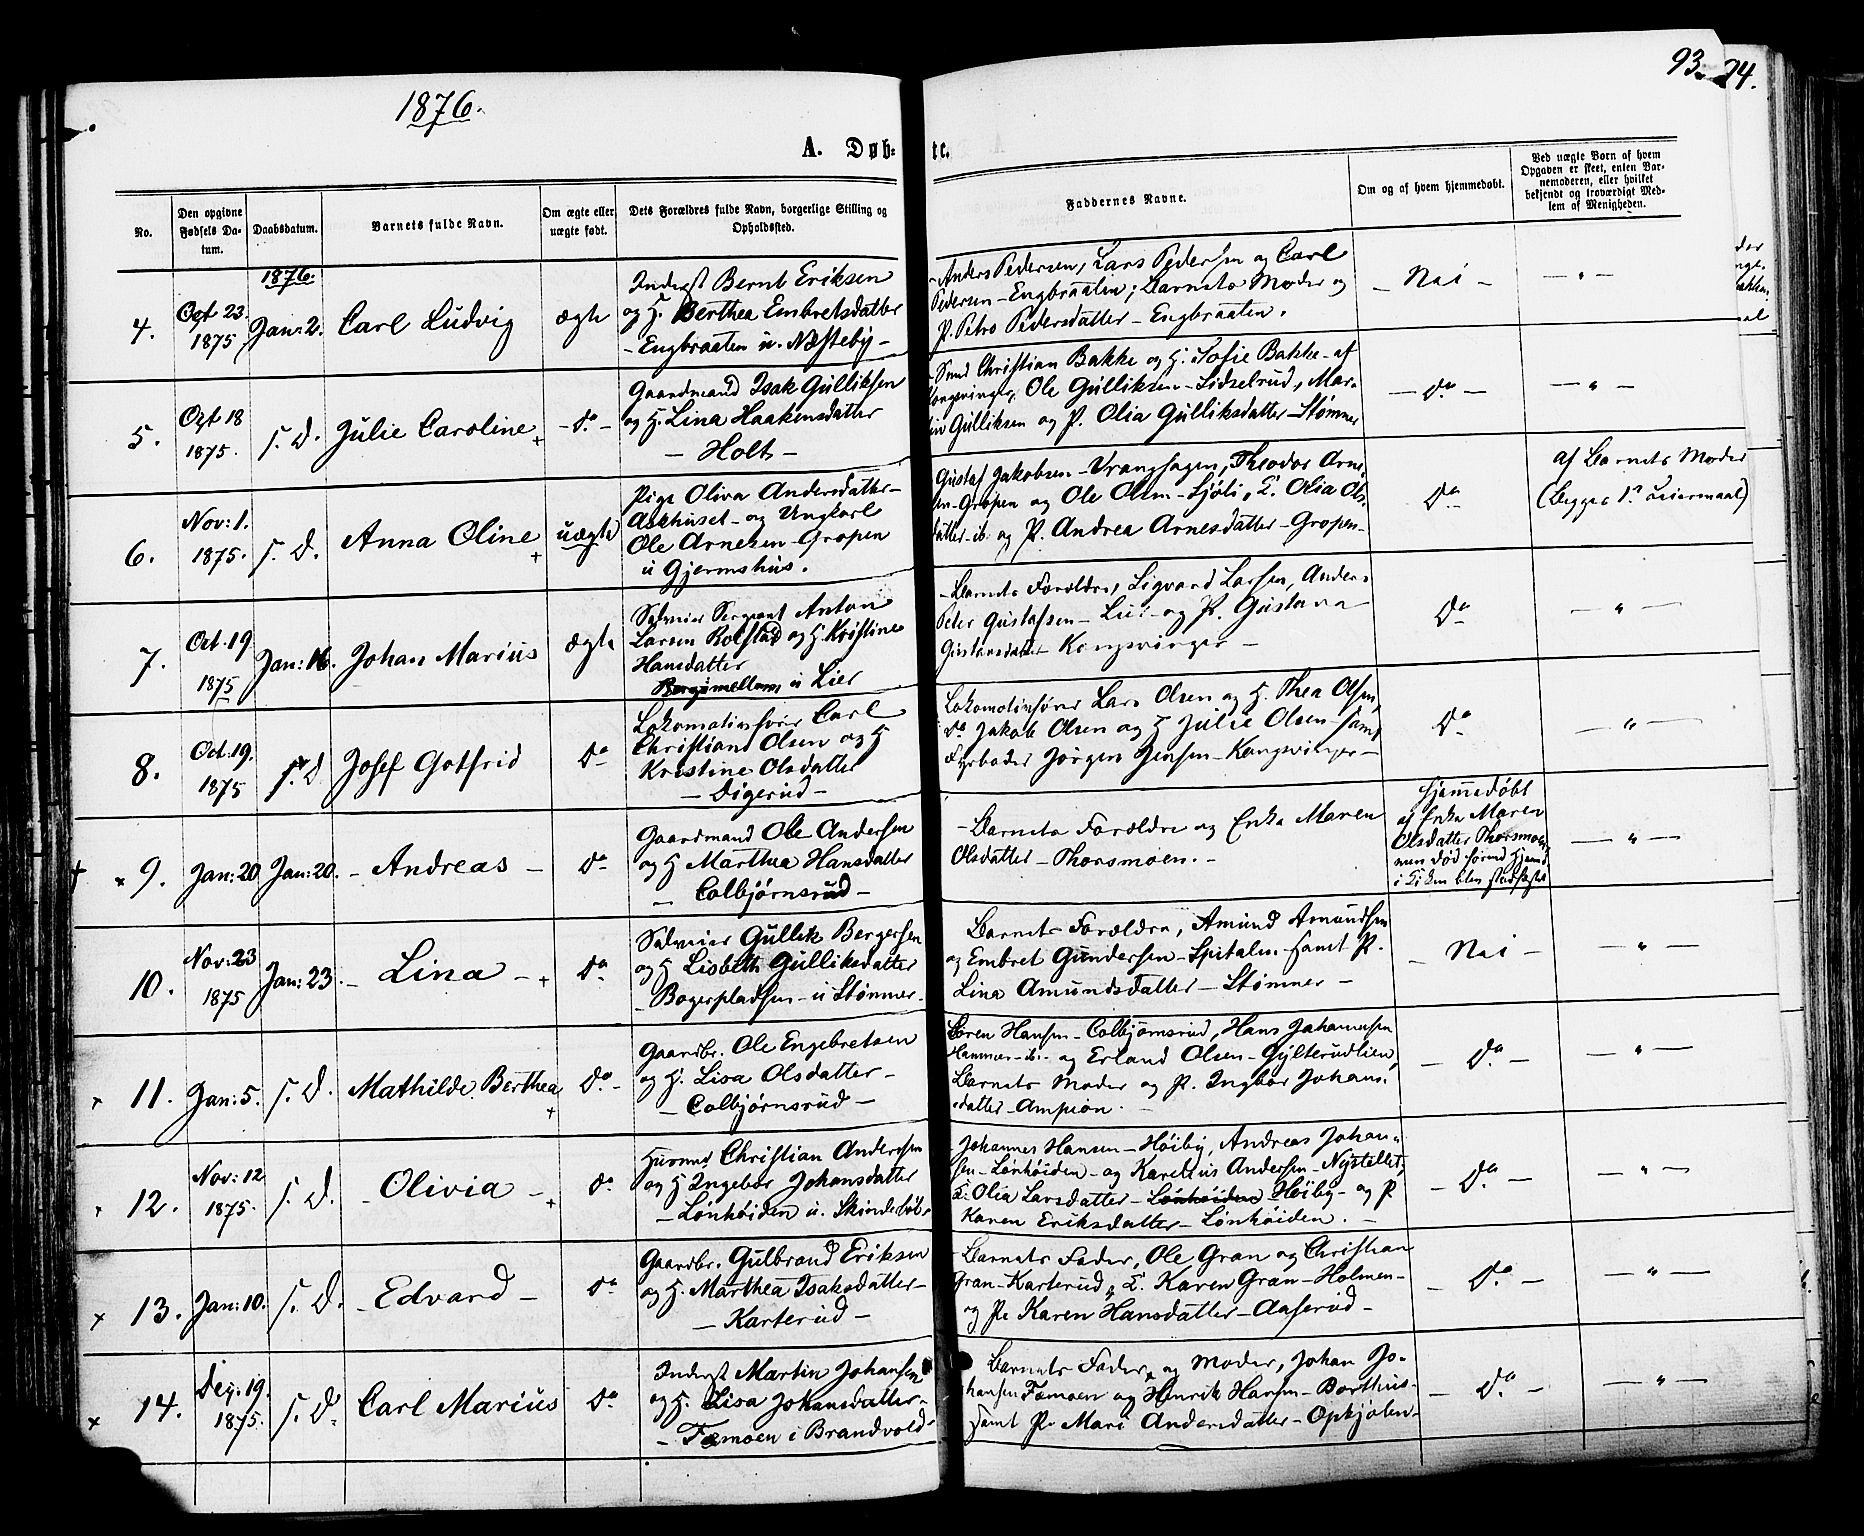 1876.
93.
94.
A. Døb-
te.
No.
Den opgivne Fødsels Da-tum.
Daabsdatum.
Barnets fulde Navn.
Om ægte eller uægte født.
Dets Forældres fulde Navn, borgerlige Stilling og Opholdssted.
Faddernes Navne.
Om og af hvem hjemmedøbt.
Ved uægte Børn af hvem Opgaven er skeet, enten Bar-nemoderen, eller hvilket bekjendt og troværdigt Med-lem af Menigheden.
1876.
4. Oct 23. 1875 Jan: 2. Carl Ludvig ægte
Inderst Bernt Eriksen
og H. Berthea Embretsdatter
- Engbraaten u. Næsteby -
Anders Pedersen, Lars Pedersen og Carl
Pedersen - Engbraaten; Barnets Moder og
P. Petro Pedersdatter - Engbraaten.
- Nei - - " -
5. Oct 18 1875. s. D. Julie Caroline - do. -
Gaardmand Isak Gulliksen
og H. Lina Haakensdatter
- Holt -
Smed Christian Bakke og H. Sofie Bakke - af
Kongsvinger, Ole Gulliksen - Sidselrud, Mar-
tin Gulliksen og P. Olia Gulliksdatter - Stømner
- do. - - " -
6. Nov: 1. 1875. s. D. Anna Oline uægte
Pige Oliva Andersdatter -
Aakhuset - og Ungkarl
Ole Arnesen - Gropen
u Gjermshus.
Gustaf Jakobsen - Vranghagen, Theodor Arne-
sen - Gropen og Ole Olsen - Sjøli, E. Olia Ols-
datter - ib. og P. Andrea Arnesdatter - Gropen -
do
af Barnets Moder
(begges 1ste Leiermaal)
7. Oct. 19 1875 Jan: 16. Johan Marius ægte
Selveier Sergeant Anton
Larsen Rolstad og H Kristine
Hansdatter
u Lier
- Barnets Forældre, Sigvard Larsen, Anders
Peter Gustafsen - Lier - og P. Gustava
Gustavsdatter Kongsvinger -
do - " -
8. Oct. 19. 1875 s. D Josef Gotfrid do
Lokomotivfører Carl
Christian Olsen og H
Kristine Olsdatter
- Digerud -
Lokomotivfører Lars Olsen og H. Thea Olsen,
do Jakob Olsen og H Julie Olsen - samt
Fyrbøder Jørgen Jensen - Kongsvinger -
do - " -
9. Jan: 20 Jan: 20. - Andreas - do
Gaardmand Ole Andersen
og H Marthea Hansdatter
- Colbjørnsrud -
- Barnets Forældre og Enke Maren
Olsdatter - Thorsmoen. -
Hjemmedøbt
af Enke Maren
Olsdatter Thorsmoen,
men død førend Hjemd.
i Kirken blev stadfæstet
- " -
10. Nov: 23 1875 Jan: 23. - Lina - do
Selveier Gullik Bergersen
og H Lisbeth Gulliksdatter
Bogerpladsen - u Stømner.
Barnets Forældre, Amund Amundsen
og Embret Gundersen - Spitalen - samt P.
Lina Amundsdatter - Stømner -
- Nei - - " -
11. Jan: 5. s. D. Mathilde Berthea do -
Gaardbr. Ole Engebretsen
og H. Lisa Olsdatter -
- Colbjørnsrud -
Søren Hansen - Colbjørnsrud, Hans Johannesen
Hammer - ib. - og Erland Olsen - Gylterudlien,
Barnets Moder og P. Ingbor Johans-
datter - Ampion. -
- do - - " -
12. Nov: 12 1875. s. D. - Olivia - do
Husmd Christian Andersen
og H Ingebor Johansdatter
- Lønhøiden u. Skinderbøl -
Johannes Hansen - Høiby, Andreas Johan-
sen - Lønhøiden - og Karelius Andersen - Nystellet,
E. Olia Larsdatter - Lønhøiden Høiby - og P
Karen Eriksdatter - Lønhøiden. -
- do - - " -
13. Jan: 10. s. D. - Edvard - do
Gaardbr. Gulbrand Eriksen
og H. Marthea Isaksdatter -
- Karterud -
- Barnets Fader, Ole Gran og Christian
Gran - Karterud, E. Karen Gran - Holmen -
og P. Karen Hansdatter - Aaserud -
- do - - " -
14. Dez: 19. 1875. s. D. Carl Marius do
Inderst Martin Johansen
og H. Lisa Johansdatter -
- Fæmoen i Brandvold -
Barnets Fader og Moder, Johan Jo-
hansen Fæmoen og Henrik Hansen - Borthus -
samt P. Mari Andersdatter - Opkjølen -
- do - - " -